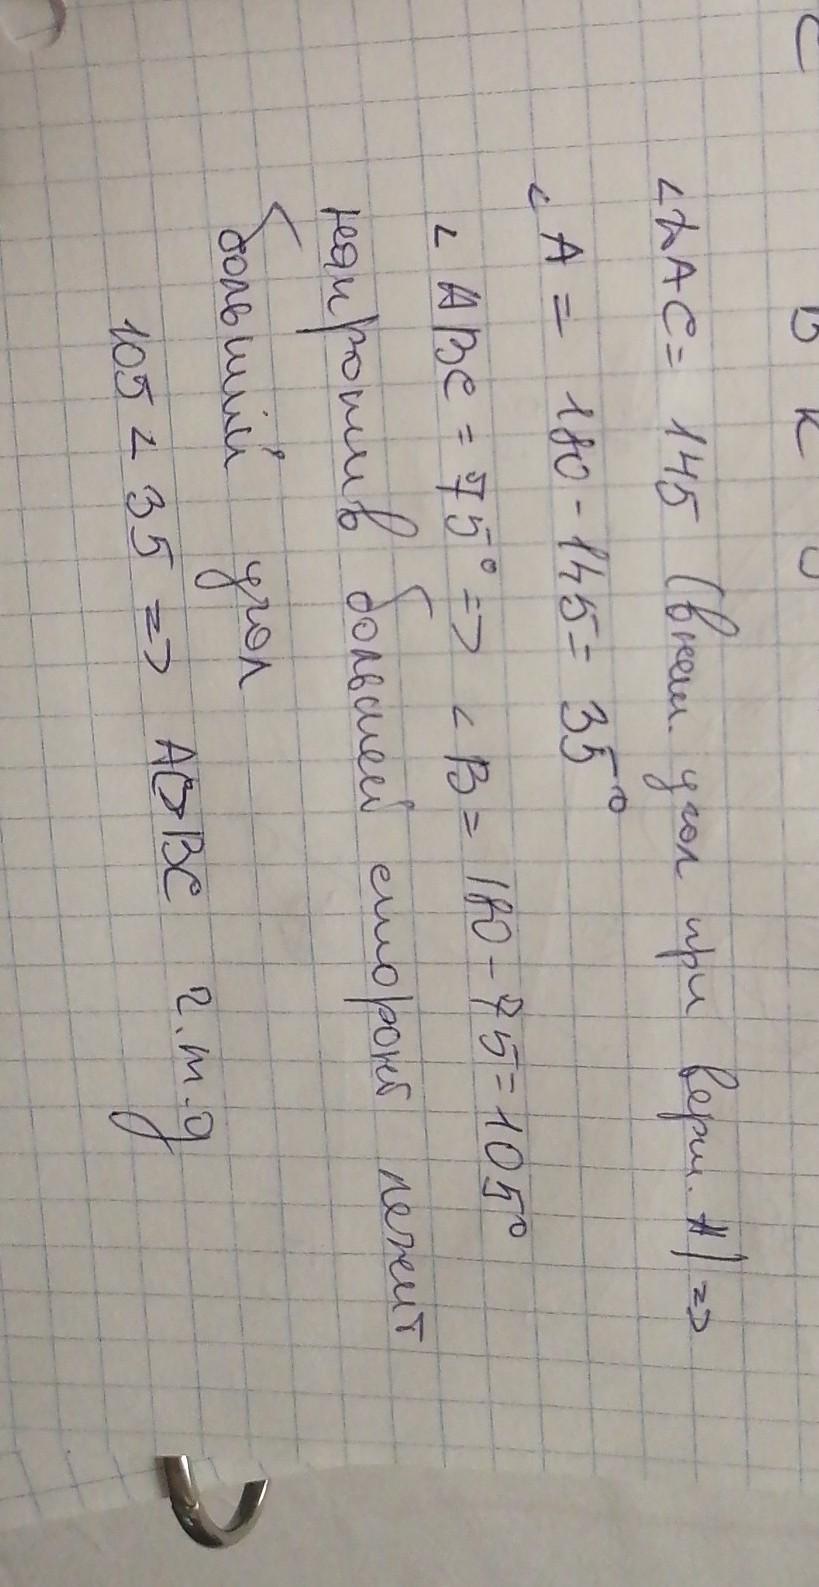 С В К
∠LAC = 145 (внеш. угол при верш. A) =>
∠A = 180 - 145 = 35°
∠ABC = 75° => ∠B = 180 - 75 = 105°
напротив большей стороны лежит
больший угол
105 < 35 => AC>BC ч.т.д